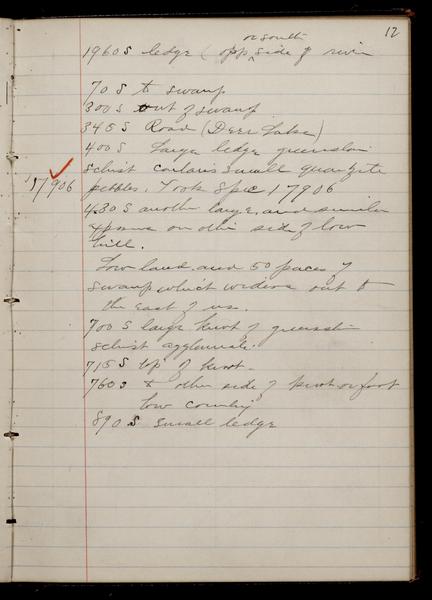 12
or south
1960 S ledge (opp. side of river
70 S to swamp
300 S out of swamp
345 S Road (Deer Lake)
400 S Large ledge greenston
schist contains small quartzite
17906 pebbles. Took Spec 17906
430 S another large and similar
on other side of low
hill.
Low land and 50 paces of
swamp which widens out to
the east of us.
700 S large knob of greenst
schist agglomerate.
715 S top of knob.
760 S to other side of
low country
890 S small ledge